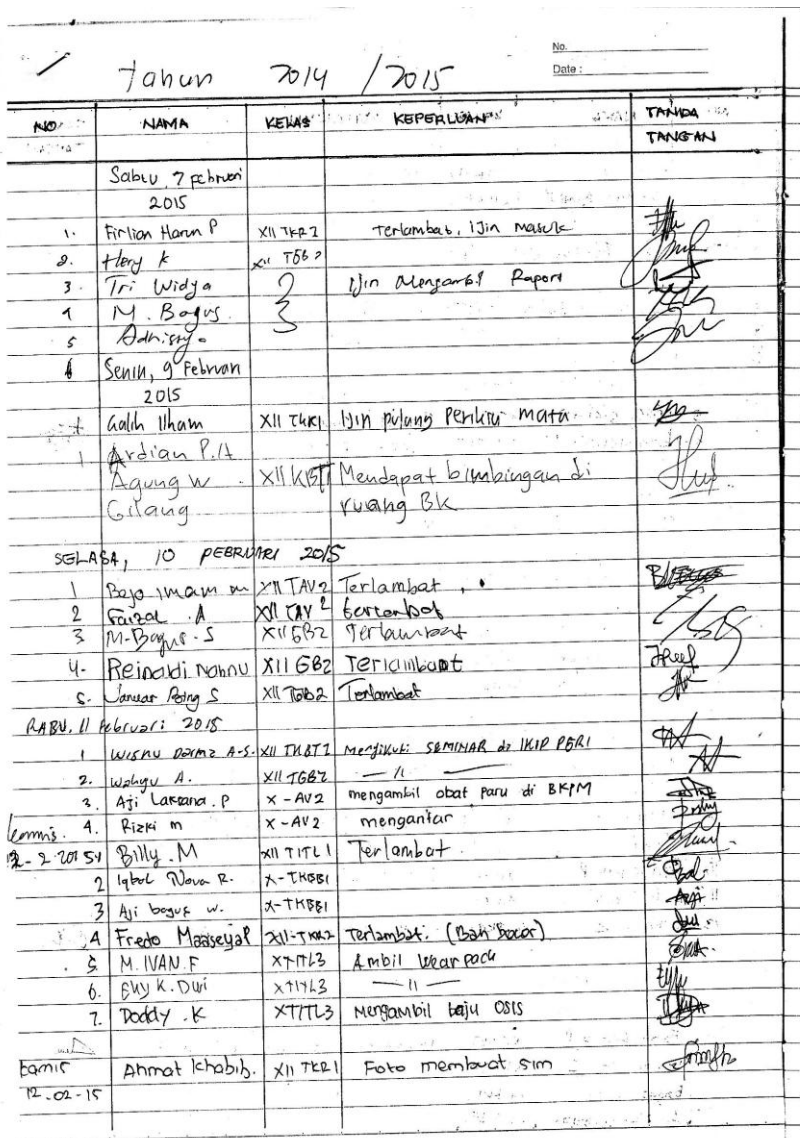 No.
Date :
Tahun 2014 / 2015
NO NAMA KELAS KEPERLUAN TANDA TANGAN
Sabtu, 7 Februari
2015
1. Firlian Harun P XII TKR2 Terlambat, Ijin Masuk
2. Hery K XII TGB2
3. Tri Widya Ijin Mengambil Raport
4 M. Bagus.
5
6 Senin, 9 Februari
2015
Galih Ilham XII TKR1 Ijin pulang Periksa mata
1 Ardian P.A
Agung W XII KBT1 Mendapat bimbingan di
Gilang ruang BK
SELASA, 10 PEBRUARI 2015
1 Bejo imam m XII TAV2 Terlambat
2 Faizal .A XII TAV2 terlambat
3 M. Bagus. S XII GB2 Terlambat
4. Reinaldi XII GB2 Terlambat
5. Januar S XII TGB2 Terlambat
RABU, 11 Februari 2015
1 Wisnu Darma A.S. XII TKBT1 Mengikuti SEMINAR di IKIP PGRI
2. Wahyu A. XII TGB2 — 11 —
3. Aji Laksana. P X - AV2 mengambil obat paru di BKPM
4. Rizki m X - AV2 mengantar
kamis.
12-2-2015 1 Billy. M XII TITL1 Terlambat
2 Iqbal Nova R. X-TKBB1
3 Aji bagus w. X-TKBB1
4 Fredo XII-TKR2 Terlambat. (Ban Bocor)
5. M. IVAN. F XTITL3 Ambil Wearpack
6. K. Dwi XTITL3 — 11 —
7. Doddy .K XTITL3 Mengambil baju OSIS
kamis Ahmat Khabib. XII TKR1 Foto membuat sim
12-02-15